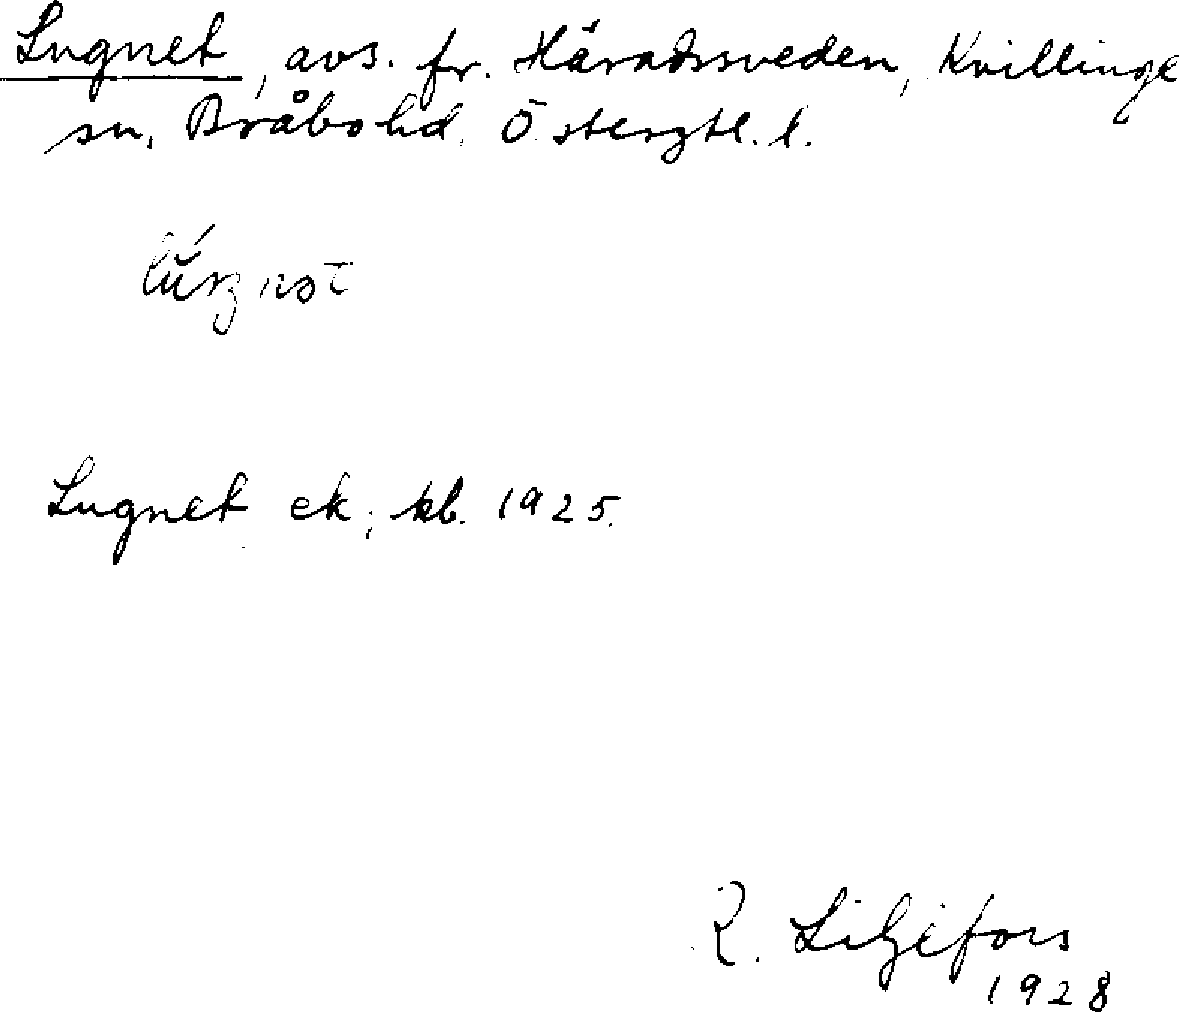 Lugnet, avs. fr. Häradssveden, Kvillinge
sn, Bråbo hd. Östergtl. l.
Lugnet ek; kb. 1925.
R. Liljefors
1928